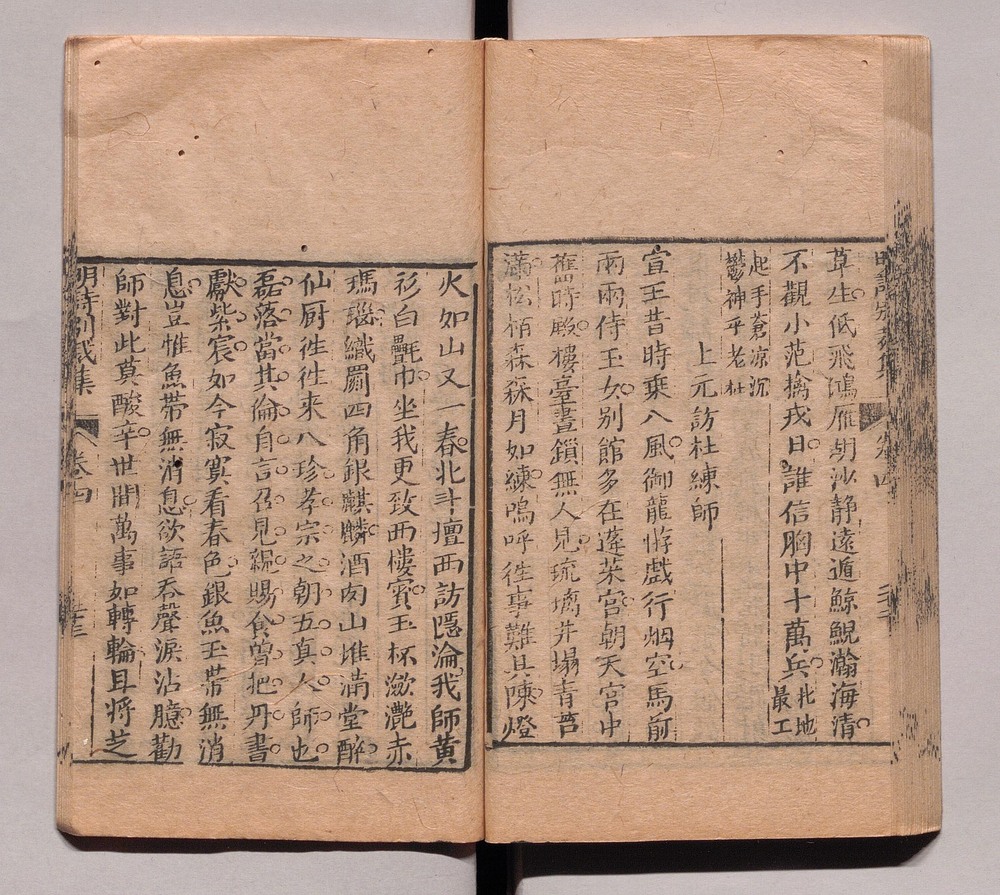 草生低飛鴻雁朝沙静遠遁鯨鯢瀚海清
不觀小范擒戎日誰信胸中十萬兵北地最工
起手蒼凉沉
鬱神乎老杜
上元訪杜練師
宣王昔時乘八風御龍游戲行烟空馬前
兩兩侍玉女別館多在蓬萊宮朝天宮中
舊時殿樓臺晝鎖無人見琉璃井塌青苔
瀟松栢森森月如練嗚呼徃事難具陳燈
火如山又一春北斗壇西訪隱淪我師黃
衫白氎巾坐我更致西樓賓玉杯瀲灧赤
瑪瑙織罽四角銀麒麟酒肉山堆滿堂醉
仙厨徃徃來八珍孝宗之朝五真人師也
磊落當其倫自言召見縂賜食曾把丹書
獻紫宸如今寂寞看春色銀魚玉帶無消
息豈惟魚帶無消息欲語吞聲淚沾臆勸
師對此莫酸辛世間萬事如轉輪且將芝
明詩別裁集
卷四